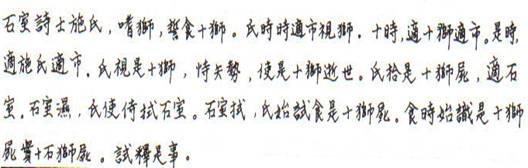 石室詩士施氏，嗜獅，誓食十獅。氏時時適市視獅。十時，適十獅適市。是時，
適施氏適市。氏視是十獅，恃矢勢，使是十獅逝世。氏拾是十獅屍，適石
室。石室濕，氏使侍拭石室。石室拭，氏始試食是十獅屍。食時始識是十獅
屍實十石獅屍。試釋是事。